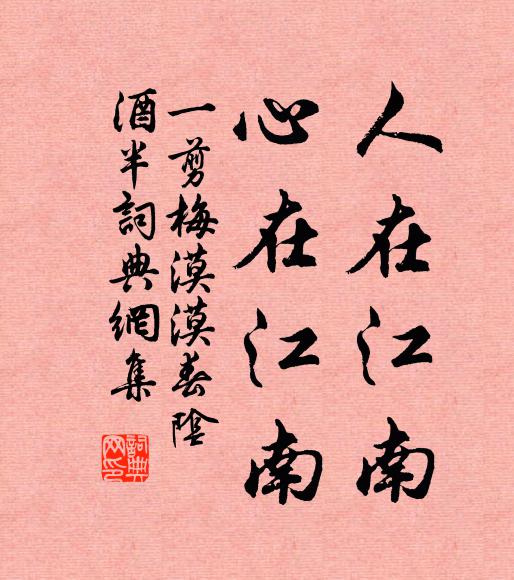 人在江南
心在江南
一剪梅漠漠春陰
酒半詞典網集
詞典網印